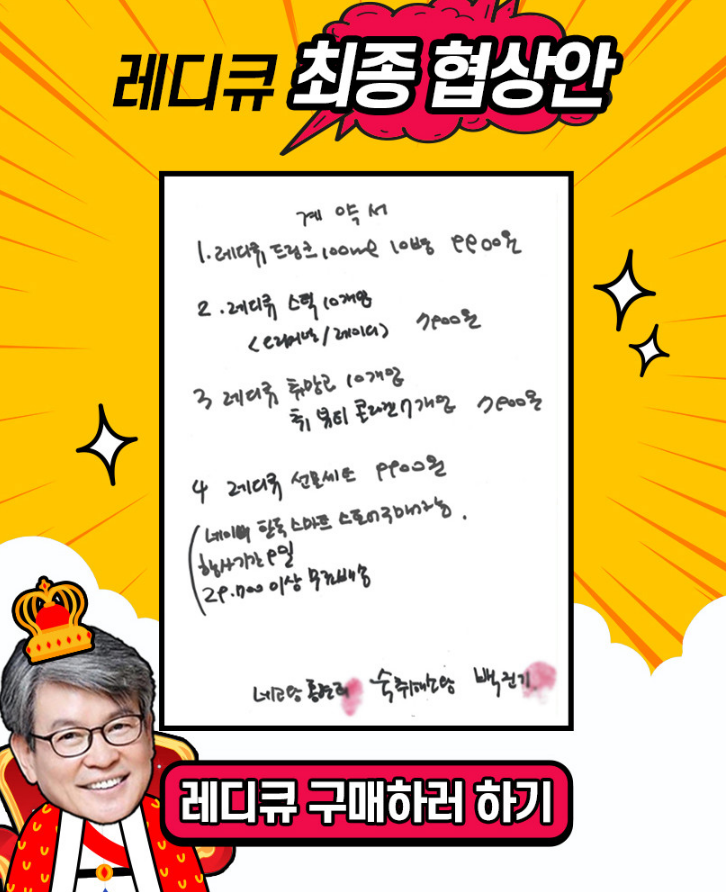 레디큐 최종 협상안
계약서
1. 레디큐 드링크 100ml 10병 9900원
2. 레디큐 스틱 10개입
<오리지널/레이디> 7900원
3 레디큐 츄 망고 10개입
츄 뷰티 콜라겐 7개입 7900원
4 레디큐 선물세트 9900원
(네이버 한독 스마트 스토어 구매가능.
행사기간 9일
29.000 이상 무료배송
네고왕 황보라 숙취해소왕 백진기
레디큐 구매하러 하기